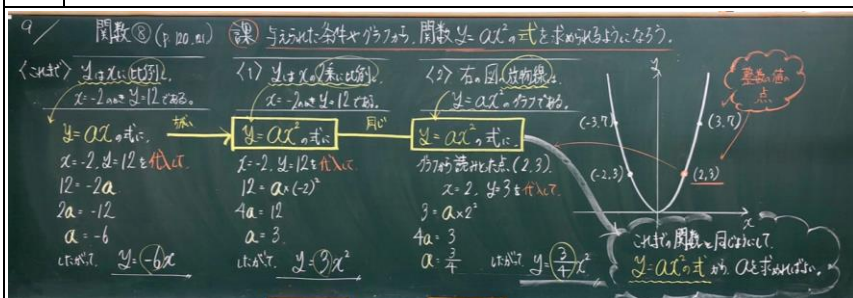 9/ 関数⑧ (p.120,121) 課 与えられた条件やグラフから、関数y=ax²の式を求められるようになろう。
〈これまで〉 yはxに比例し、
x=-2のときy=12である。
y=axの式に、
x=-2, y=12を代入して、
12=-2a
2a=-12
a=-6
したがって、y=-6x
〈1〉 yはxの2乗に比例し、
x=-2のときy=12である。
y=ax²の式に
x=-2, y=12を代入して、
12=a×(-2)²
4a=12
a=3
したがって、y=3x²
同じ
〈2〉 右の図の放物線は、
y=ax²のグラフである。
y=ax²の式に、
グラフから読みとれた点、(2,3)、
x=2, y=3を代入して、
3=a×2²
4a=3
a=3/4
したがって y=3/4x²
y
(-3,7)
(3,7)
(-2,3)
(2,3)
x
整数の値の
点
これまでの関数と同じようにして、
y=ax²の式からaを求めればよい。